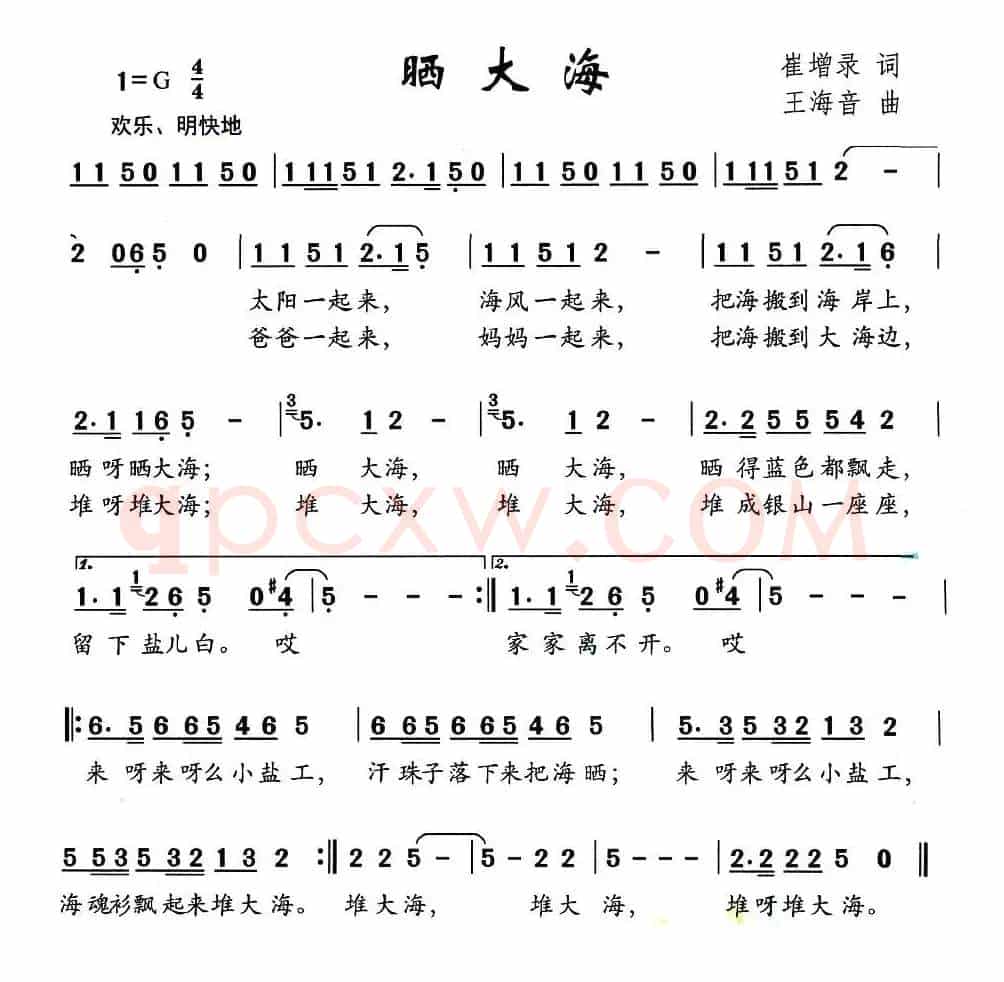 晒大海
1=G 4/4
崔增录 词
王海音 曲
欢乐、明快地
1 1 5 0 1 1 5 0 | 1 1 1 5 1 2. 1 5 0 | 1 1 5 0 1 1 5 0 | 1 1 1 5 1 2 - |
2 0 6 5 0 | 1 1 5 1 2. 1 5 | 1 1 5 1 2 - | 1 1 5 1 2. 1 6 |
太阳一起来, 海风一起来, 把海搬到海岸上,
爸爸一起来, 妈妈一起来, 把海搬到大海边,
2. 1 1 6 5 - | 3 5. 1 2 - | 3 5. 1 2 - | 2. 2 5 5 5 4 2 |
晒呀晒大海; 晒 大海, 晒 大海, 晒得蓝色都飘走,
堆呀堆大海; 堆 大海, 堆 大海, 堆成银山一座座,
qpcxw.COM
1. 2.
1. 1 1 2 6 5 0 #4 | 5 - - - :‖ 1. 1 1 2 6 5 0 #4 | 5 - - - |
留下盐儿白。 哎 家家离不开。 哎
‖: 6. 5 6 6 5 4 6 5 | 6 6 5 6 6 5 4 6 5 | 5. 3 5 3 2 1 3 2 |
来呀来呀么小盐工, 汗珠子落下来把海晒; 来呀来呀么小盐工,
5 5 3 5 3 2 1 3 2 :‖ 2 2 5 - | 5 - 2 2 | 5 - - - | 2. 2 2 2 5 0 ‖
海魂衫飘起来堆大海。 堆大海, 堆大海, 堆呀堆大海。